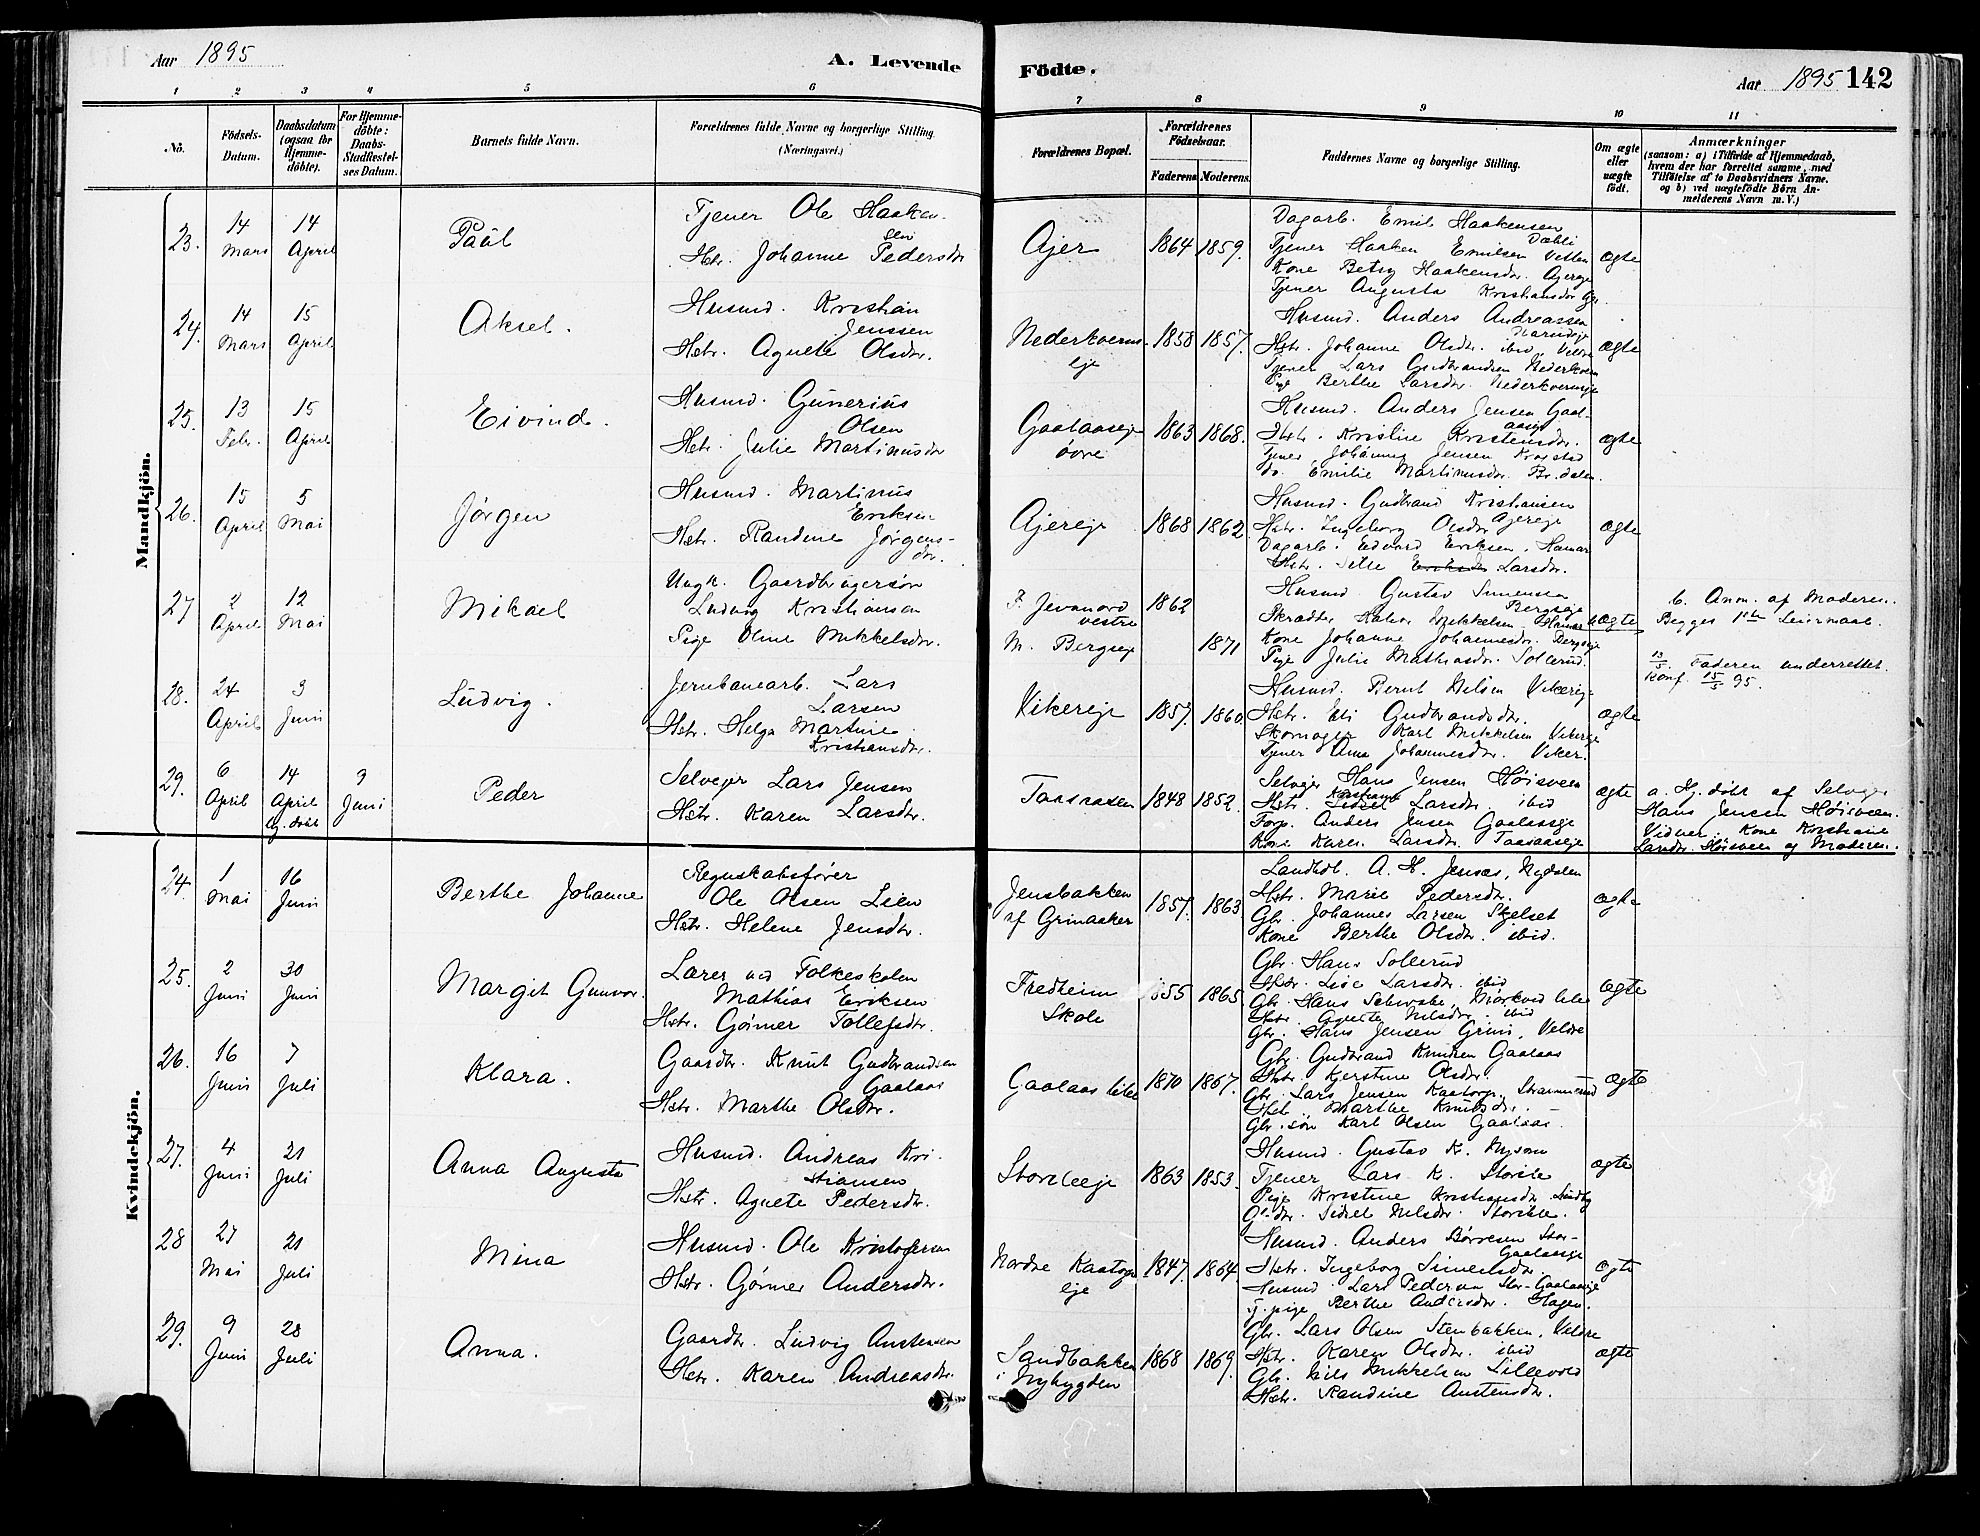 Aar 1895
A. Levende
Födte.
Aar 1895 142
1 2 3 4 5 6 7 8 9 10 11
No.
Födsels-Datum.
Daabsdatum (ogsaa for Hjemme-döbte).
For Hjemme-döbte: Daabs-Stadfæstel-ses Datum.
Barnets fulde Navn.
Forældrenes fulde Navne og borgerlige Stilling. (Næringsvei.)
Forældrenes Bopæl.
Forældrenes Födselsaar.
Faderens Moderens.
Faddernes Navne og borgerlige Stilling.
Om ægte eller uægte födt.
Anmærkninger
(saasom: a) i Tilfælde af Hjemmedaab, hvem der har forrettet samme, med Tilföielse af to Daabsvidners Navne, og b) ved uægtefödte Börn An-melderens Navn m. V.)
Mandkjön.
23. 14 Mars 14 April Paul
Tjener Ole Haaken-sen
Hstr. Johanne Pedersdr
Ajer 1864 1859.
Dagarb. Emil Haakensen Dæhli
Tjener Haaken Emilsen Vetten
Kone Betsy Haakensdr. Ajereje
Tjener Augusta Kristiansdr
ægte
24. 14 Mars 15 April Aksel.
Husmd. Kristian Jenssen
Hstr. Agnete Olsdr.
Nederkverns-eje 1858 1857.
Husmd. Anders Andreassen
Hstr. Johanne Olsdr. ibid. Veldre
Tjener Lars Gudbrandsen Nederkvern
Pige Berthe Larsdr. Nederkvernseje
ægte
25. 13 Febr. 15 April Eivind.
Husmd. Gunerius Olsen
Hstr. Julie Martinusdr
Gaalaaseje øvre 1863 1868.
Husmd. Anders Jensen Gaal-aseje
Hstr. Kristine Kristensdr.
Tjener Johannes Jensen
do. Emilie Martinusdr.
ægte
26. 15 April 5 Mai Jørgen
Husmd. Martinus Eriksen
Hstr. Randine Jørgens-dr.
Ajereje 1868 1862
Husmd. Gudbrand Kristiansen Ajereje
Hstr. Ingeborg Olsdr
Dagarb. Edvard Eriksen, Hamar
Hstr. Larsdr.
ægte
27 2 April 12 Mai Mikael
Ungk. Gaardbrugersøn
Ludvig Kristiansen
Pige Oline Mikkelsdr.
F. Jevanord vestre 1862
M. Bergseje 1871
Husmd. Gustav Simensen Bergseje
Skrædder Halvor Mikkelsen Hamar
Kone Johanne Johannesdr. Bergseje
Pige Julie Mathiasdr. Sollerud.
uægte
b. Anm. af Moderen.
Begges 1ste Leiermaal.
13/5. Faderen underrettet.
Konf. 15/5 95.
28. 24 April 3 Juni Ludvig.
Jernbanearb. Lars Larsen
Hstr. Helga Martine Kristiansdr.
Vikereje 1857. 1860.
Husmd. Bernt Nilsen Vikereje
Hstr. Eli Gudbrandsdr.
Skomager Karl Mikkelsen Vikereje
Tjener Anna Johannesdr. Viker.
ægte
29. 6 April 14 April hj. døbt 3 Juni Peder
Selveger Lars Jensen
Hstr. Karen Larsdr.
Taasaasen 1848 1852.
Selveger Hans Jensen Høisveen
Hstr. Kristiane Larsdr. ibid
Forp. Anders Jensen Gaalaaseje
Kone Karen Larsdr. Taasaaseje
ægte
a. Hj. døbt af Selveger
Hans Jensen Høisveen.
Vidner: Kone Kristiane
Larsdr. Høisveen og Moderen.
Kvindekjön.
24. 1 Mai 16 Juni Berthe Johanne
Regnskabsfører
Ole Olsen Lien
Hstr. Helene Jensdr.
Jensbakken af Grinaaker 1857. 1863
Landhdl. A. H. Jensen, Nydalen
Hstr. Marie Pedersdr.
Gbr. Johannes Larsen Skjelset
Kone Berthe Olsdr. ibid.
ægte
25. 2 Juni 30 Juni Margit Gunvor.
Lærer ved Folkeskolen
Mathias Eriksen
Hstr. Gørner Tollefsdr.
Fredheim Skole 1855 1865
Gbr. Hans Sollerud
Hstr. Lise Larsdr. ibid
Gbr. Hans Schwabe, Mørkved lille
Hstr. Agnethe Nilsdr. ibid
Gbr. Hans Jensen Grini, Veldre
ægte
26. 16 Juni 7 Juli Klara.
Gaardbr. Knut Gudbrandsen Gaalaas
Hstr. Marthe Olsdr.
Gaalaas lille 1870 1867.
Gbr. Gudbrand Knudsen Gaalaas
Hstr. Kjerstine Olsdr.
Gbr. Lars Jensen Kaatorp, Strammerud
Hstr. Marthe Knutsdr. -
Gbr. søn Karl Olsen Gaalaas.
ægte
27. 4 Juni 21 Juli Anna Augusta
Husmd. Andreas Kri-stiansen
Hstr. Agnete Pedersdr.
Storileeje 1863 1853.
Husmd. Gustav K. Mysom
Tjener Lars K. Storile
Pige Kristine Kristiansdr. Lindby
Gbdtr. Sidsel Nilsdr. Storihle.
ægte
28 27 Mai 21 Juli Mina
Husmd. Ole Kristofersen
Hstr. Gørner Andersdr.
Nordre Kaatorp eje 1847. 1864
Husmd. Anders Børresen Stor-Gaalaaseje
Hstr. Ingeborg Simensdr.
Husmd Lars Pedersen Stor-Gaalaaseje
Tj.pige Berthe Andersdr. Hagen.
ægte
29. 9 Juni 28 Juli Anna.
Gaardbr. Ludvig Austensen
Hstr. Karen Andreasdr.
Sandbakken i Nybygden 1868 1869.
Gbr. Lars Olsen Stenbakken, Veldre
Hstr. Karen Olsdr. ibid
Gbr. Nils Mikkelsen Lillevold
Hstr. Randine Austensdr.
ægte